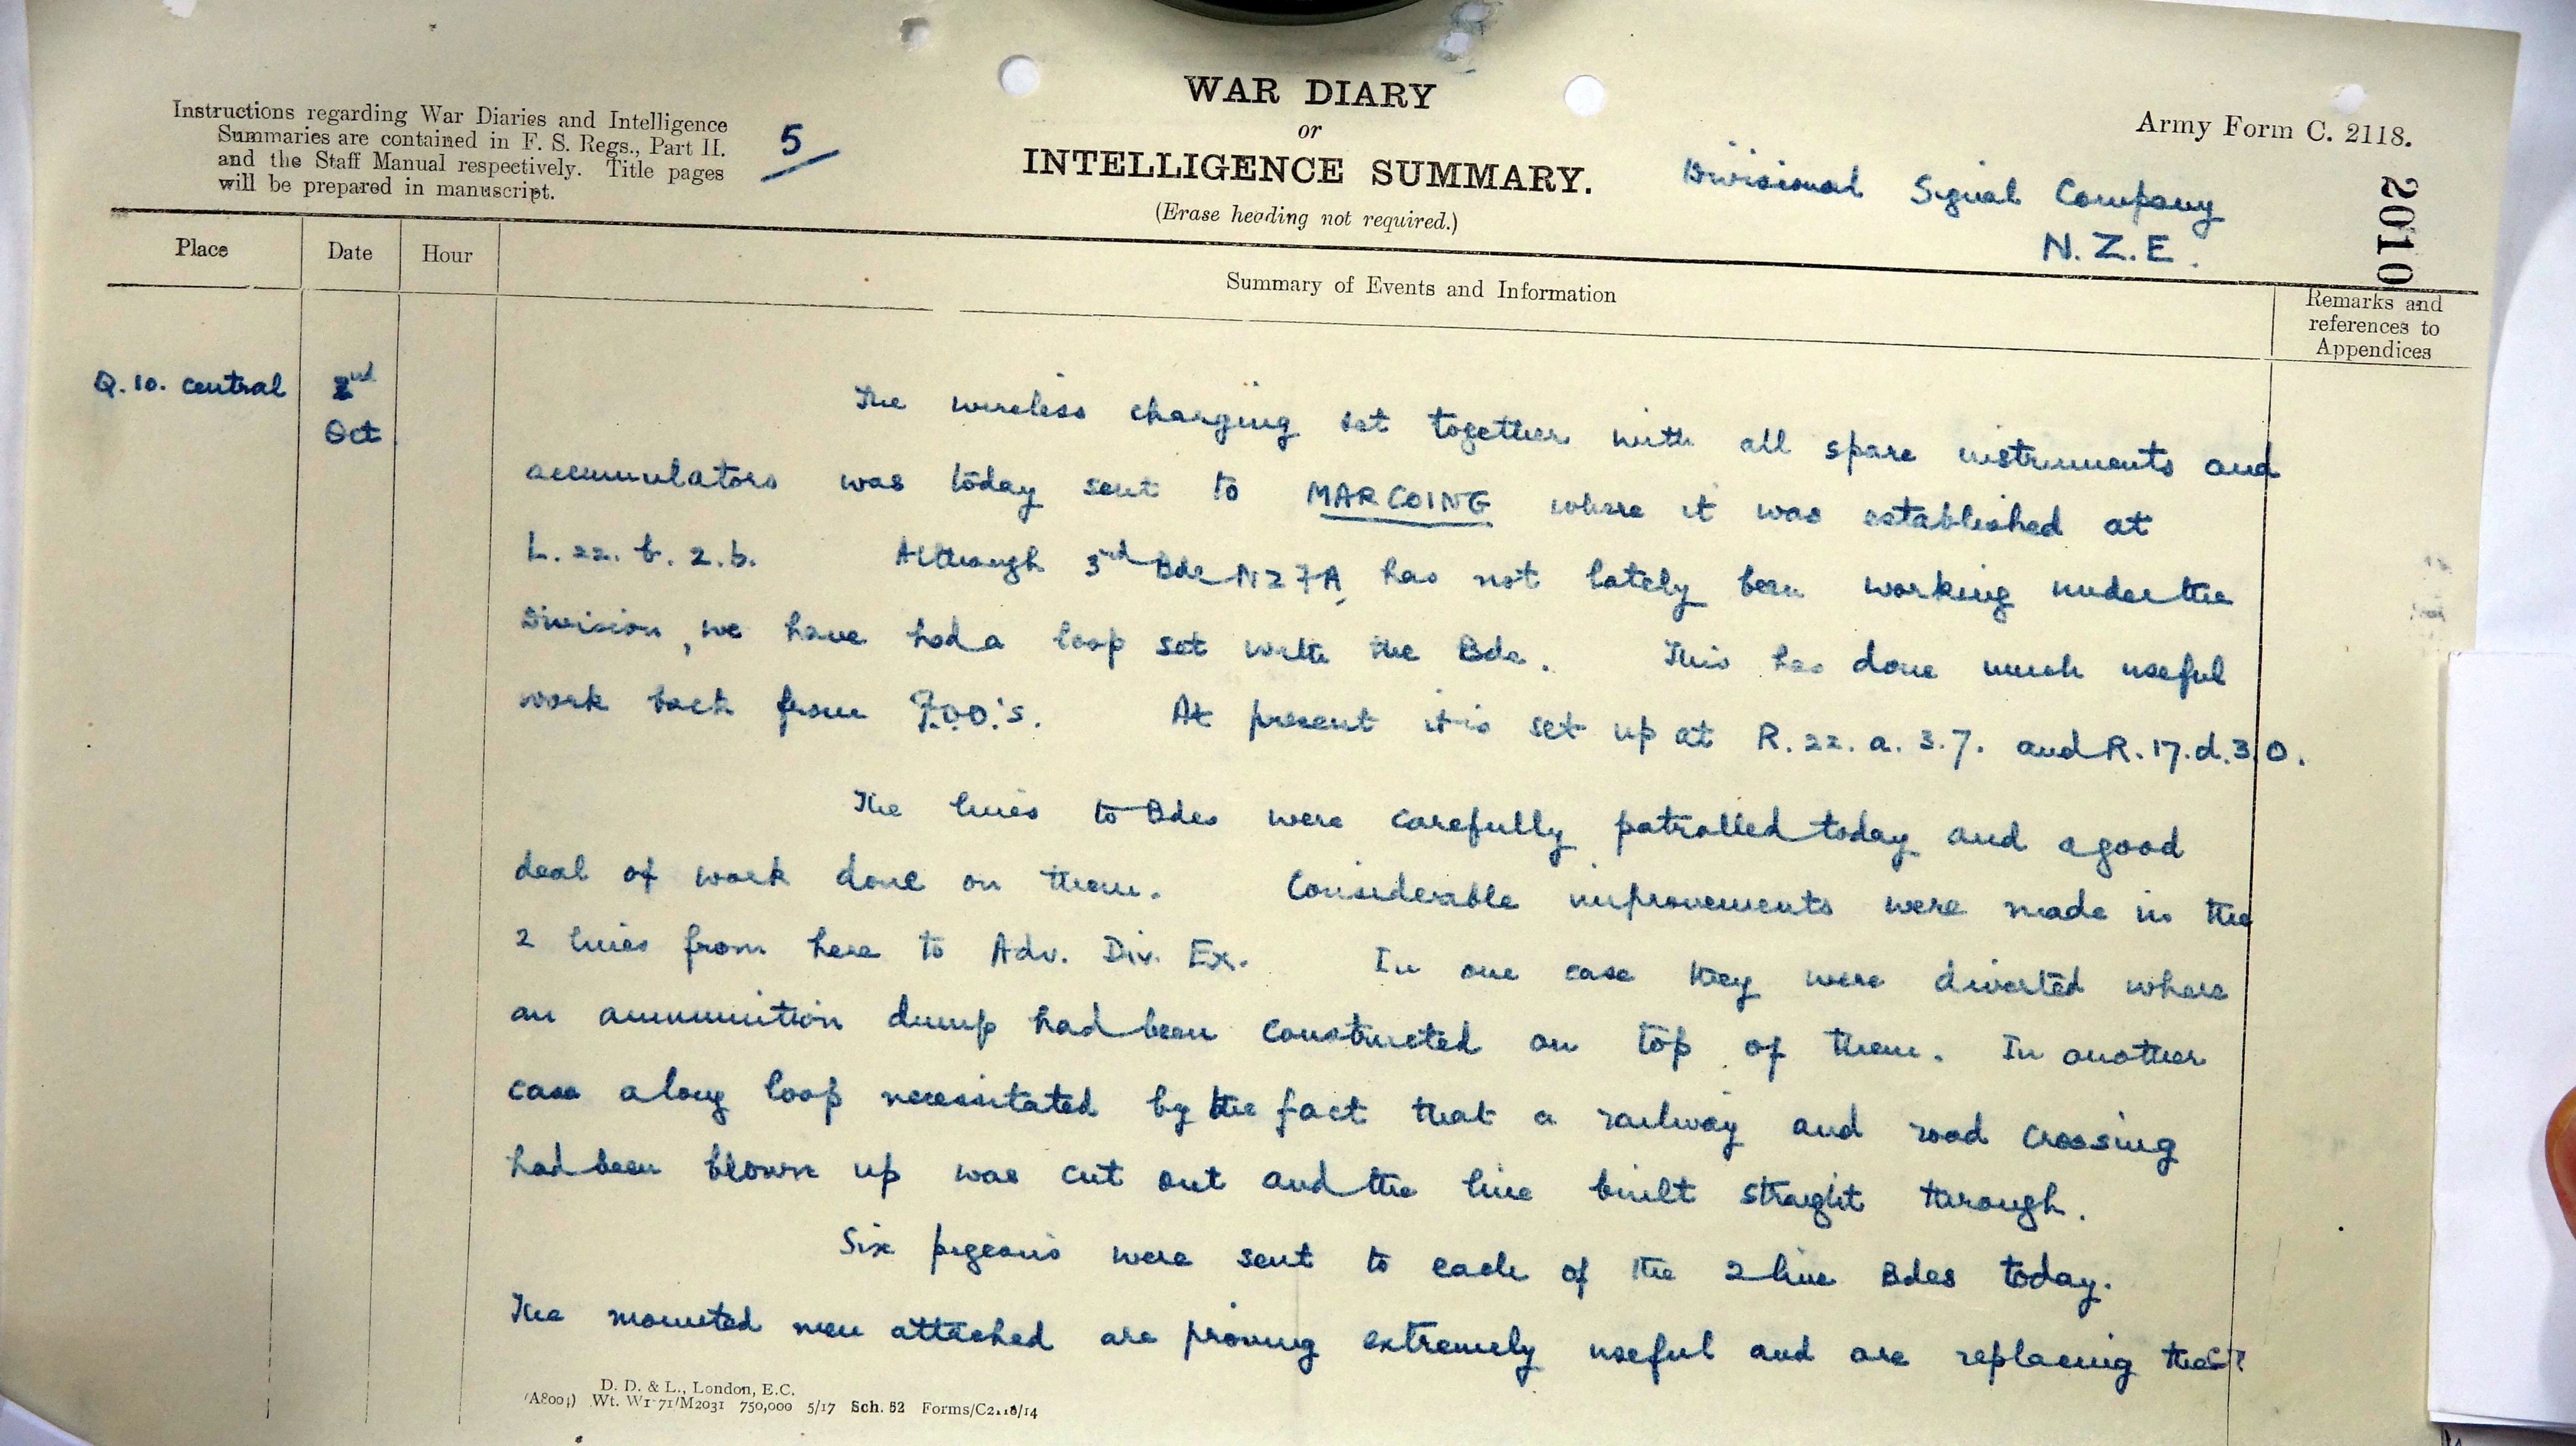 Instructions regarding War Diaries and Intelligence
Summaries are contained in F. S. Regs., Part II.
and the Staff Manual respectively. Title pages
will be prepared in manuscript.
5
WAR DIARY
or
INTELLIGENCE SUMMARY.
(Erase heading not required.)
Army Form C. 2118.
Divisional Signal Company
N.Z.E.
2010
Place
Date
Hour
Summary of Events and Information
Remarks and
references to
Appendices
Q.10. central
2nd
Oct
The wireless charging set together with all spare instruments and
accumulators was today sent to MARCOING where it was established at
L.22.b.2.b. Although 3rd Bde NZFA, has not lately been working under the
Division, we have had a loop set with the Bde. This has done much useful
work back from F.O.O.'s. At present it is set up at R.22.a.3.7. and R.17.d.3.0.
The lines to Bdes were carefully patrolled today and a good
deal of work done on them. Considerable improvements were made in the
2 lines from here to Adv. Div. Ex. In one case they were diverted where
an ammunition dump had been constructed on top of them. In another
case a long loop necessitated by the fact that a railway and road crossing
had been blown up was cut out and the line built straight through.
Six pigeons were sent to each of the 2 line Bdes today.
The mounted men attached are proving extremely useful and are replacing
D. D. & L., London, E.C.
Wt. W1771/M2031 750,000 5/17 Sch. 52 Forms/C2118/14